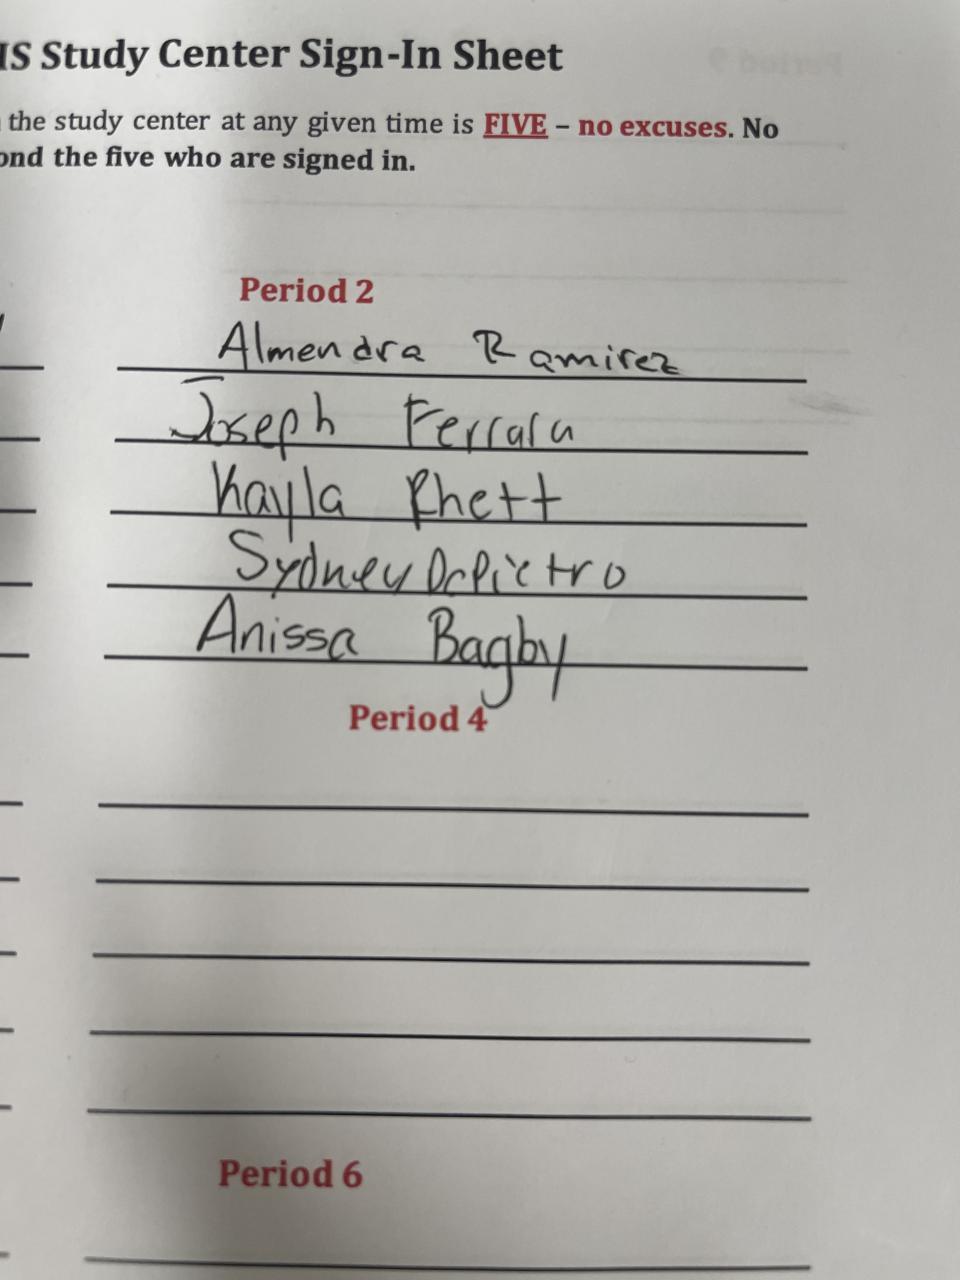 IS Study Center Sign-In Sheet
the study center at any given time is FIVE – no excuses. No
ond the five who are signed in.
Period 2
Almendra Ramirez
Joseph Ferrara
Kayla Rhett
Sydney DePietro
Anissa Bagby
Period 4
Period 6